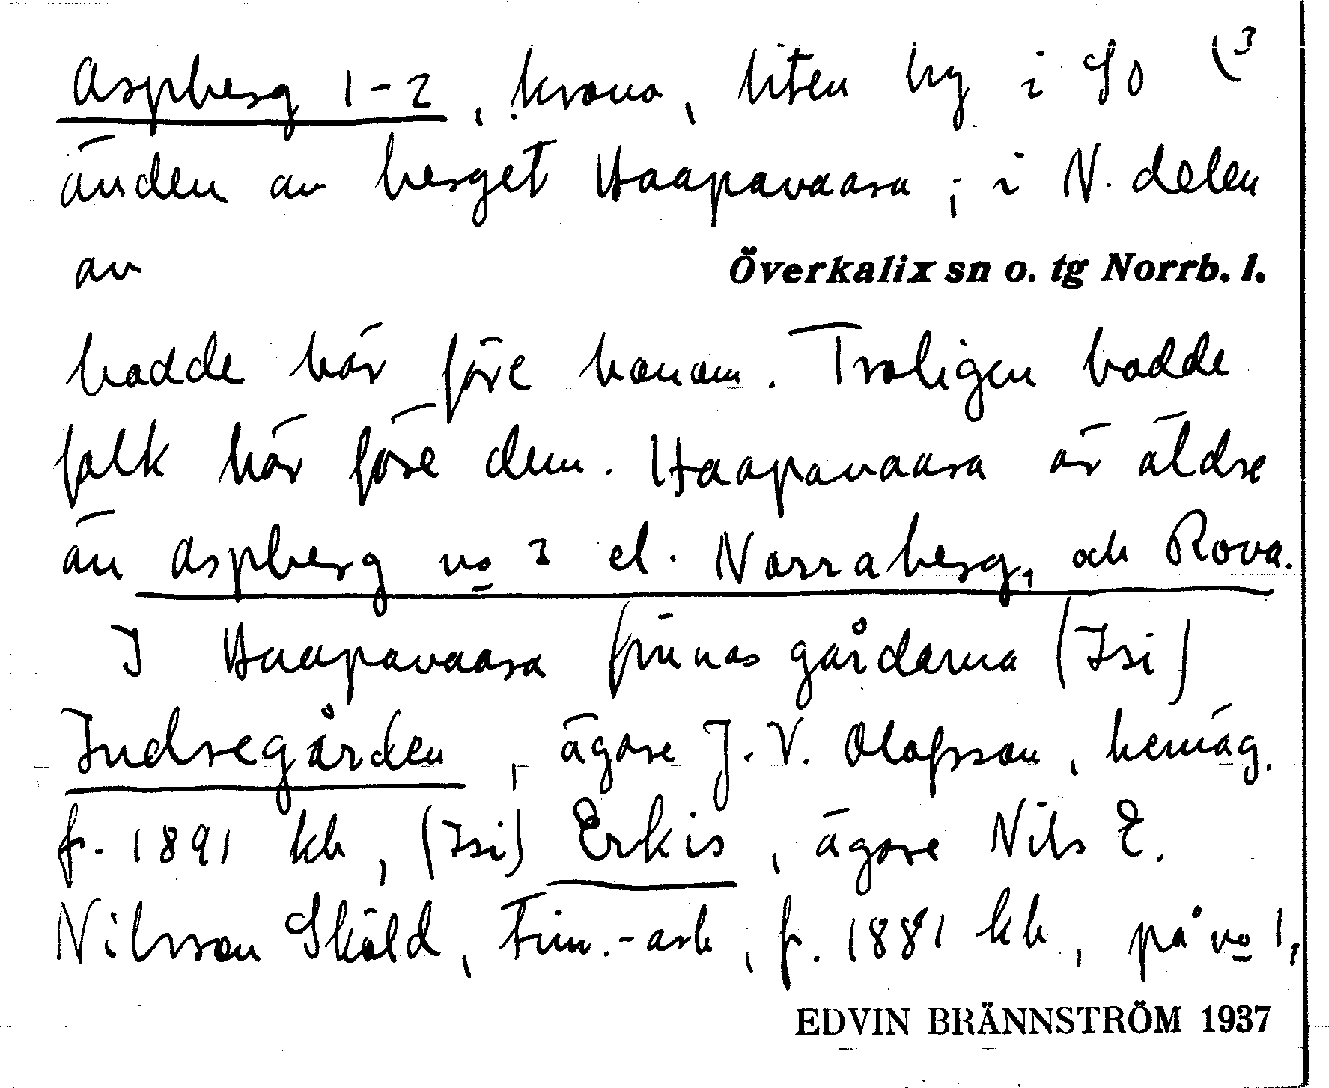 Aspberg 1-2, krono, liten by i SO (3
änden av berget Haapavaara, i N. delen
av
Överkalix sn o. tg Norrb. l.
bodde här före honom. Troligen bodde
folk här före dem. Haapavaara är äldre
än Aspberg no 3 el. Norraberg, och Rova.
I Haapavaara finnas gårdarna (Isi)
Indregården, ägare J. V. Olofsson, hemäg.
f. 1891 kb, (Isi) Erkis, ägare Nils E.
Nilsson Sköld, tim.-arb, f. 1881 kb, på no 1,
EDVIN BRÄNNSTRÖM 1937